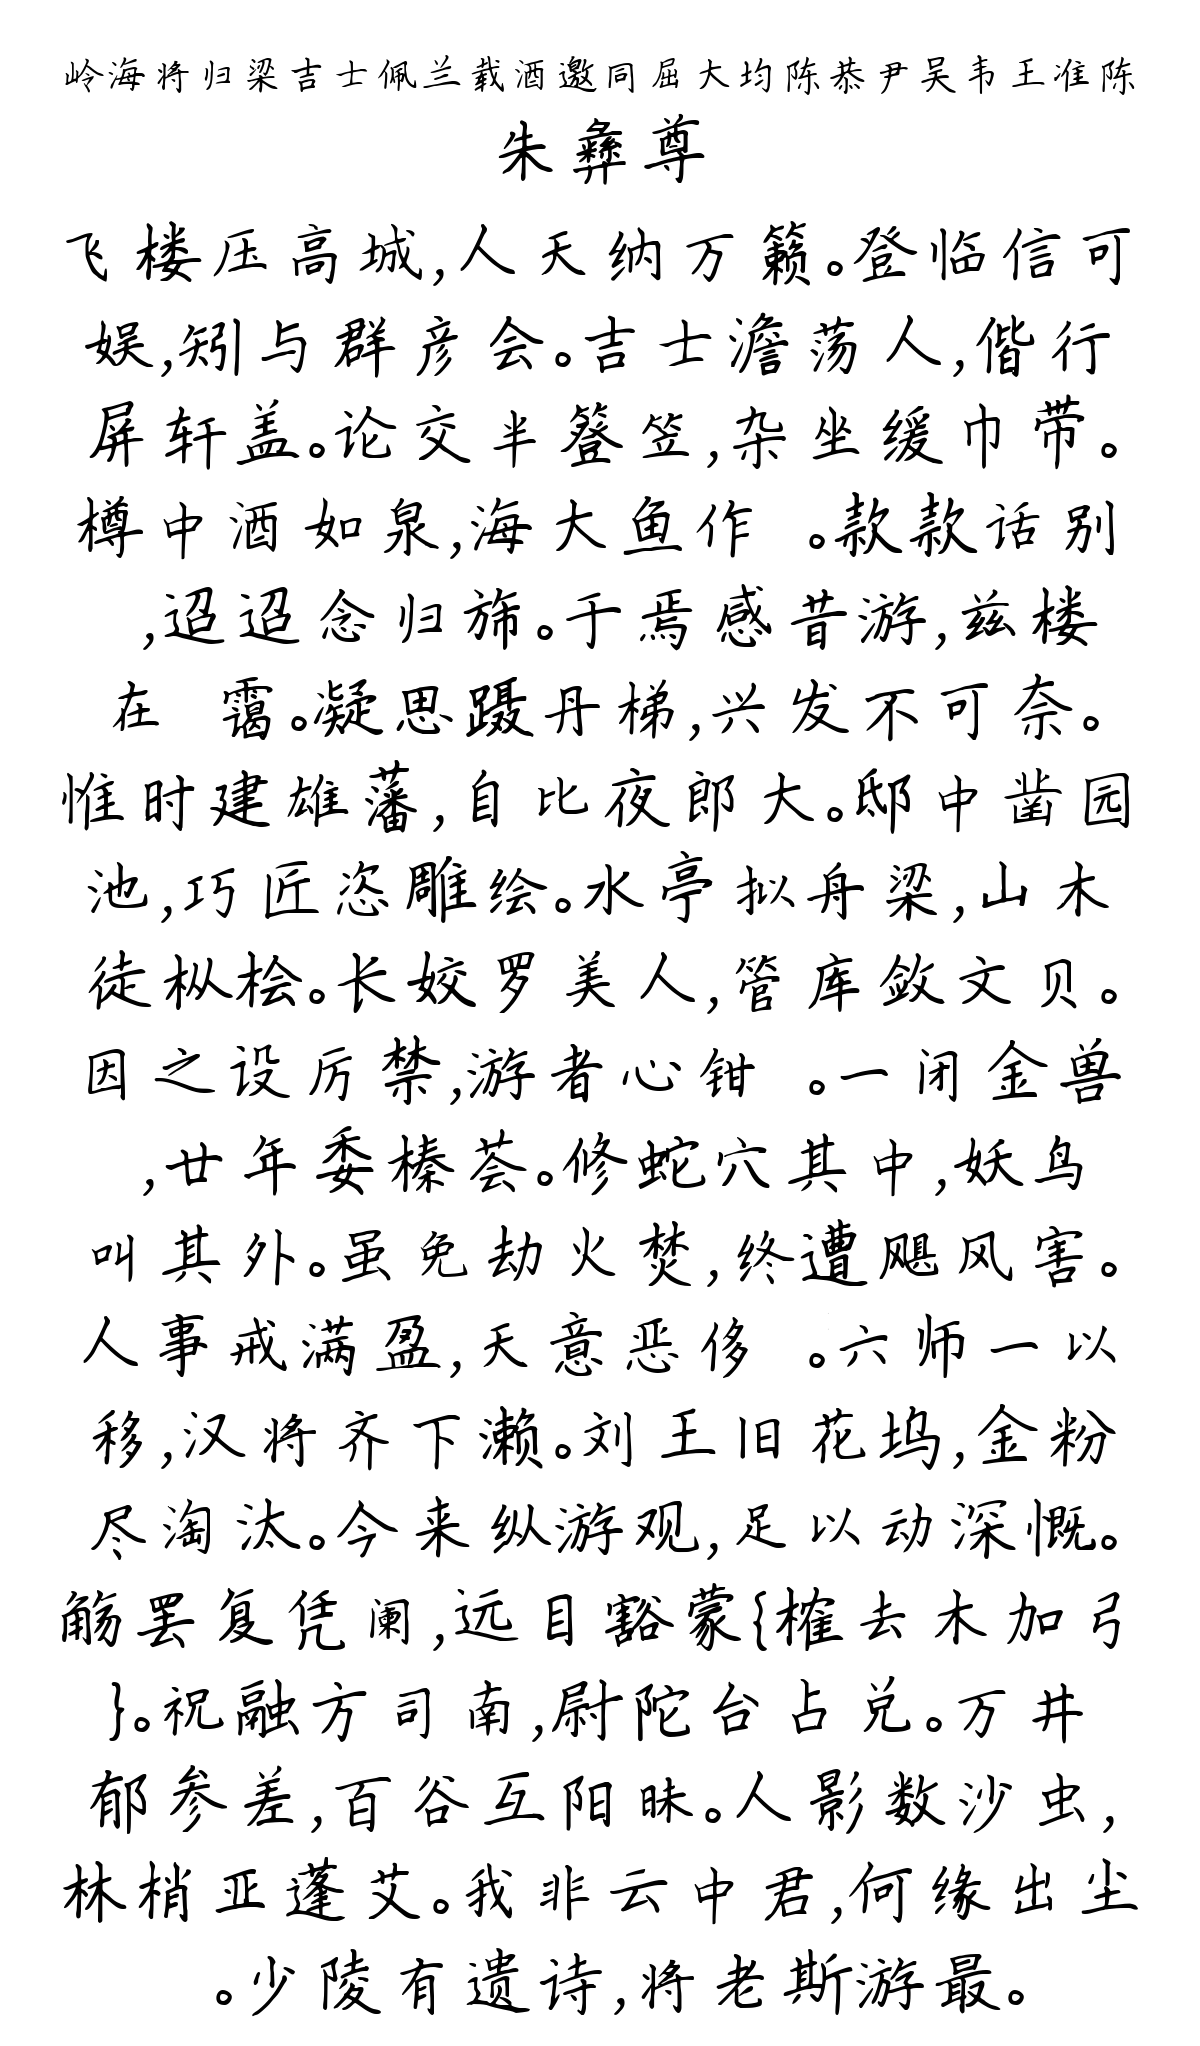 岭海将归梁吉士佩兰载酒邀同屈大均陈恭尹吴韦王准陈
朱彝尊
飞楼压高城,人天纳万籁。登临信可
娱,矧与群彦会。吉士澹荡人,偕行
屏轩盖。论交半簦笠,杂坐缓巾带。
樽中酒如泉,海大鱼作 。款款话别
,迢迢念归旆。于焉感昔游,兹楼
在 霭。凝思蹑丹梯,兴发不可奈。
惟时建雄藩,自比夜郎大。邸中凿园
池,巧匠恣雕绘。水亭拟舟梁,山木
徒枞桧。长姣罗美人,管库敛文贝。
因之设厉禁,游者心钳 。一闭金兽
,廿年委榛荟。修蛇穴其中,妖鸟
叫其外。虽免劫火焚,终遭飓风害。
人事戒满盈,天意恶侈 。六师一以
移,汉将齐下濑。刘王旧花坞,金粉
尽淘汰。今来纵游观,足以动深慨。
觞罢复凭阑,远目豁蒙{榷去木加弓
}。祝融方司南,尉陀台占兑。万井
郁参差,百谷互阳昧。人影数沙虫,
林梢亚蓬艾。我非云中君,何缘出尘
。少陵有遗诗,将老斯游最。